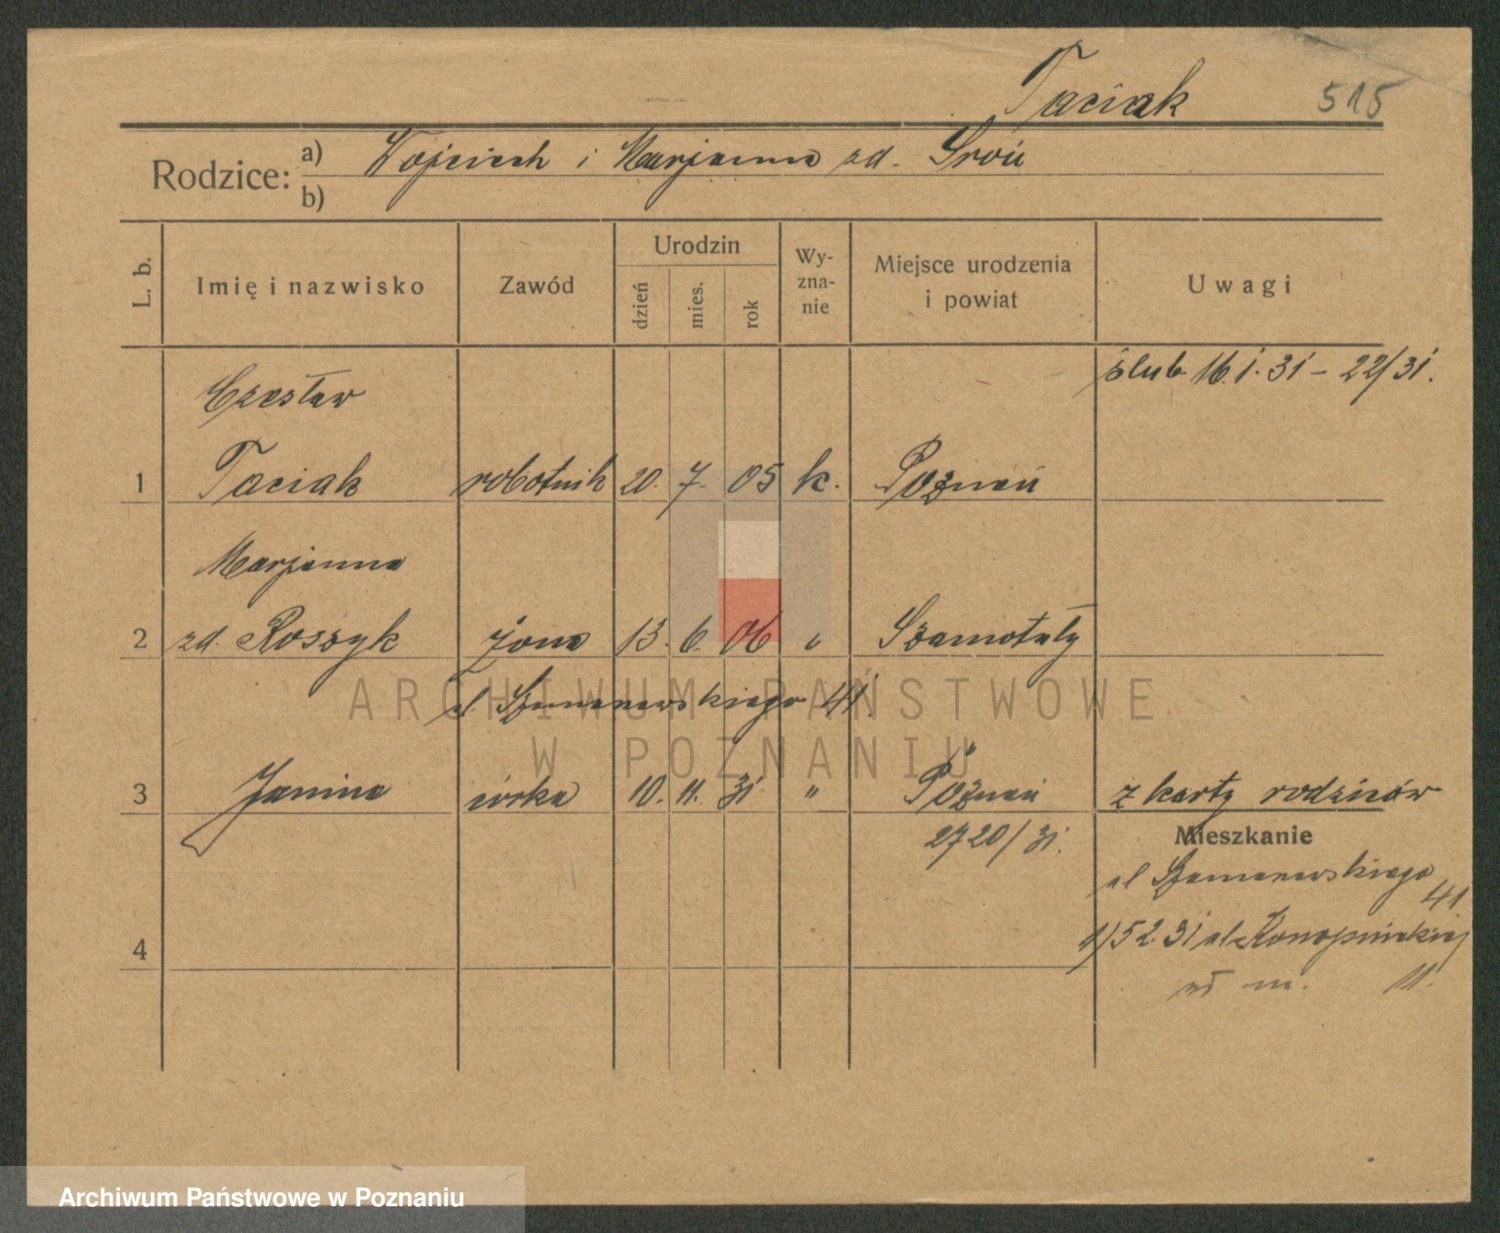 Taciak 515
Rodzice: a) Wojciech i Marjanna zd. Sroń
b)
L. b. Imię i nazwisko Zawód Urodzin dzień mies. rok Wy-zna-nie Miejsce urodzenia i powiat Uwagi
ślub. 16.1.31 – 22/31.
Czesław
1 Taciak robotnik 20. 7. 05 k. Poznań
Marjanna
2 zd. Roszyk żona 13. 6. 06 " Szamotuły
ul Szamarzewskiego 41.
3 Janina córka 10. 11. 31 " Poznań z karty rodziców
2720/31.
Mieszkanie
ul Szamarzewskiego 41
1/52.31 ul. Konopnickiej
4
m. 11.
ARCHIWUM PAŃSTWOWE
W POZNANIU
Archiwum Państwowe w Poznaniu